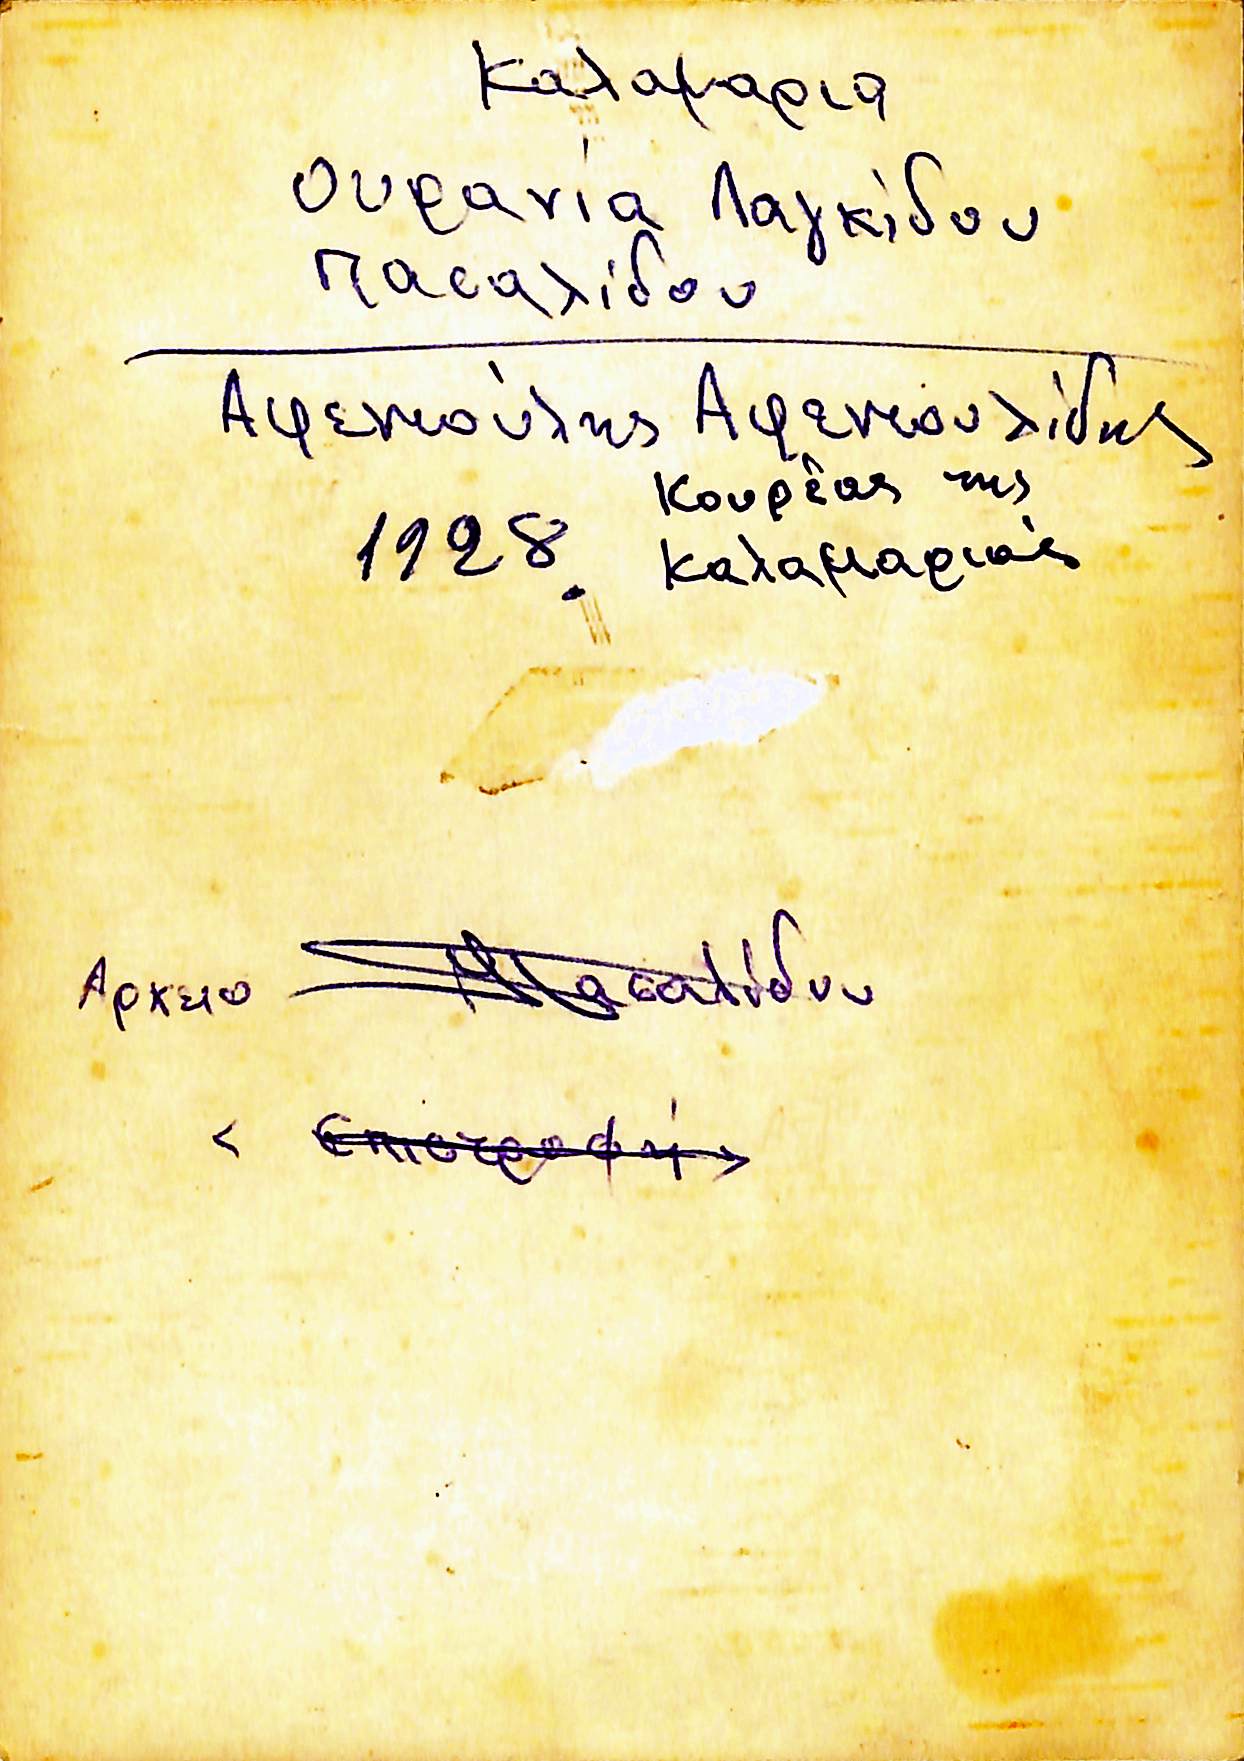 Καλαμαρια
Ουρανία Λαγκίδου
Πασαλίδου
Αφεντούλης Αφεντουλίδης
1928. Κουρέας της
Καλαμαριάς
Αρχειο Πασαλίδου
< Επιστροφή >